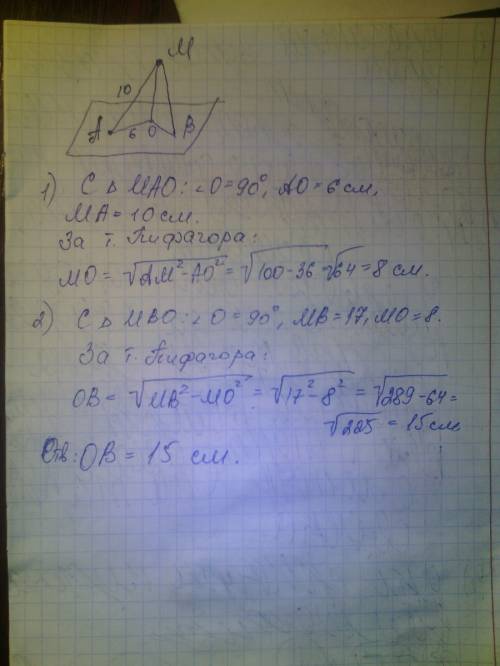 M
10
A 6 O B
1) С △ MAO: ∠O = 90°, AO = 6 см,
MA = 10 см.
За т. Пифагора:
MO = √(AM² - AO²) = √(100 - 36) √64 = 8 см.
2) С △ MBO: ∠O = 90°, MB = 17, MO = 8.
За т. Пифагора:
OB = √(MB² - MO²) = √(17² - 8²) = √(289 - 64) =
√225 = 15 см
Отв: OB = 15 см.